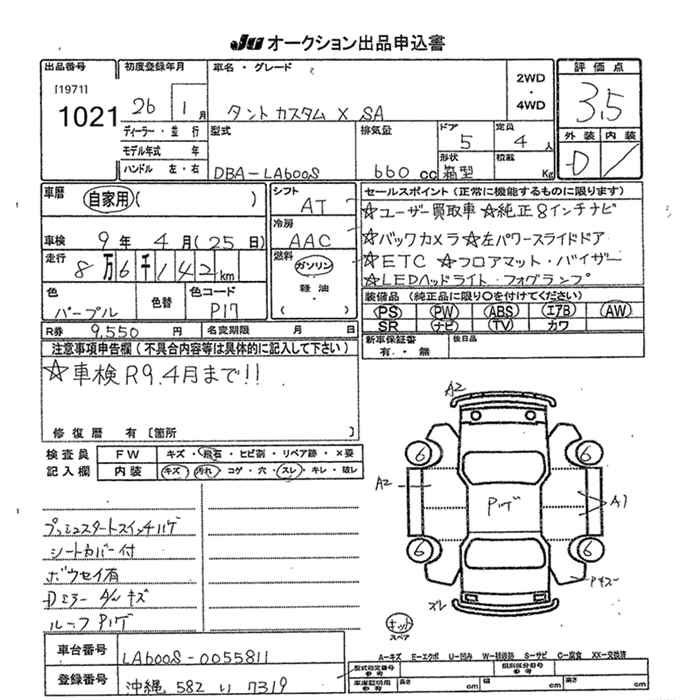 JU オークション出品申込書
出品番号
[1971]
1021
初度登録年月
26 1月
ディーラー・並行
モデル年式 年
ハンドル 左・右
車名・グレード
タントカスタム X SA
2WD
・
4WD
型式
DBA-LA600S
排気量
660 cc
ドア
5
定員
4人
形状
箱型
積載
Kg
評価点
3.5
外装 内装
D /
車歴
自家用( )
車検 9年 4月(25日)
走行
8万6千142km
色
パープル
色替
色コード
P17
シフト
AT
冷房
AAC
燃料
ガソリン
軽油
( )
セールスポイント(正常に機能するものに限ります)
☆ユーザー買取車 ☆純正8インチナビ
☆バックカメラ ☆左パワースライドドア
☆ETC ☆フロアマット・バイザー
☆LEDヘッドライト・フォグランプ
装備品(純正品に限り○を付けてください)
PS PW ABS エアB AW
SR ナビ TV カワ
R券 9,550円 名変期限 月 日
新車保証書
有・無
後日品
注意事項申告欄(不具合内容等は具体的に記入して下さい)
☆車検R9.4月まで!!
修復歴 有 [箇所 ]
検査員
記入欄
FW キズ・飛石・ヒビ割・リペア跡・×要
内装 キズ・汚れ・コゲ・穴・スレ・キレ・破レ
プッシュスタートスイッチハゲ
シートカバー付
ボウセイ有
Dミラー A/ハキズ
ルーフPハゲ
A2
6 6
A2 Pハゲ A1
6 6
Pキズ
ズレ
キット
スペア
A-キズ E-エクボ U-凹み S-サビ C-腐食 XX-交換済
車台番号 LA600S-0055811
登録番号 沖縄 582 い 7319
型式指定番号
参考
類別区分番号
参考
高さ cm 幅 cm 長さ cm